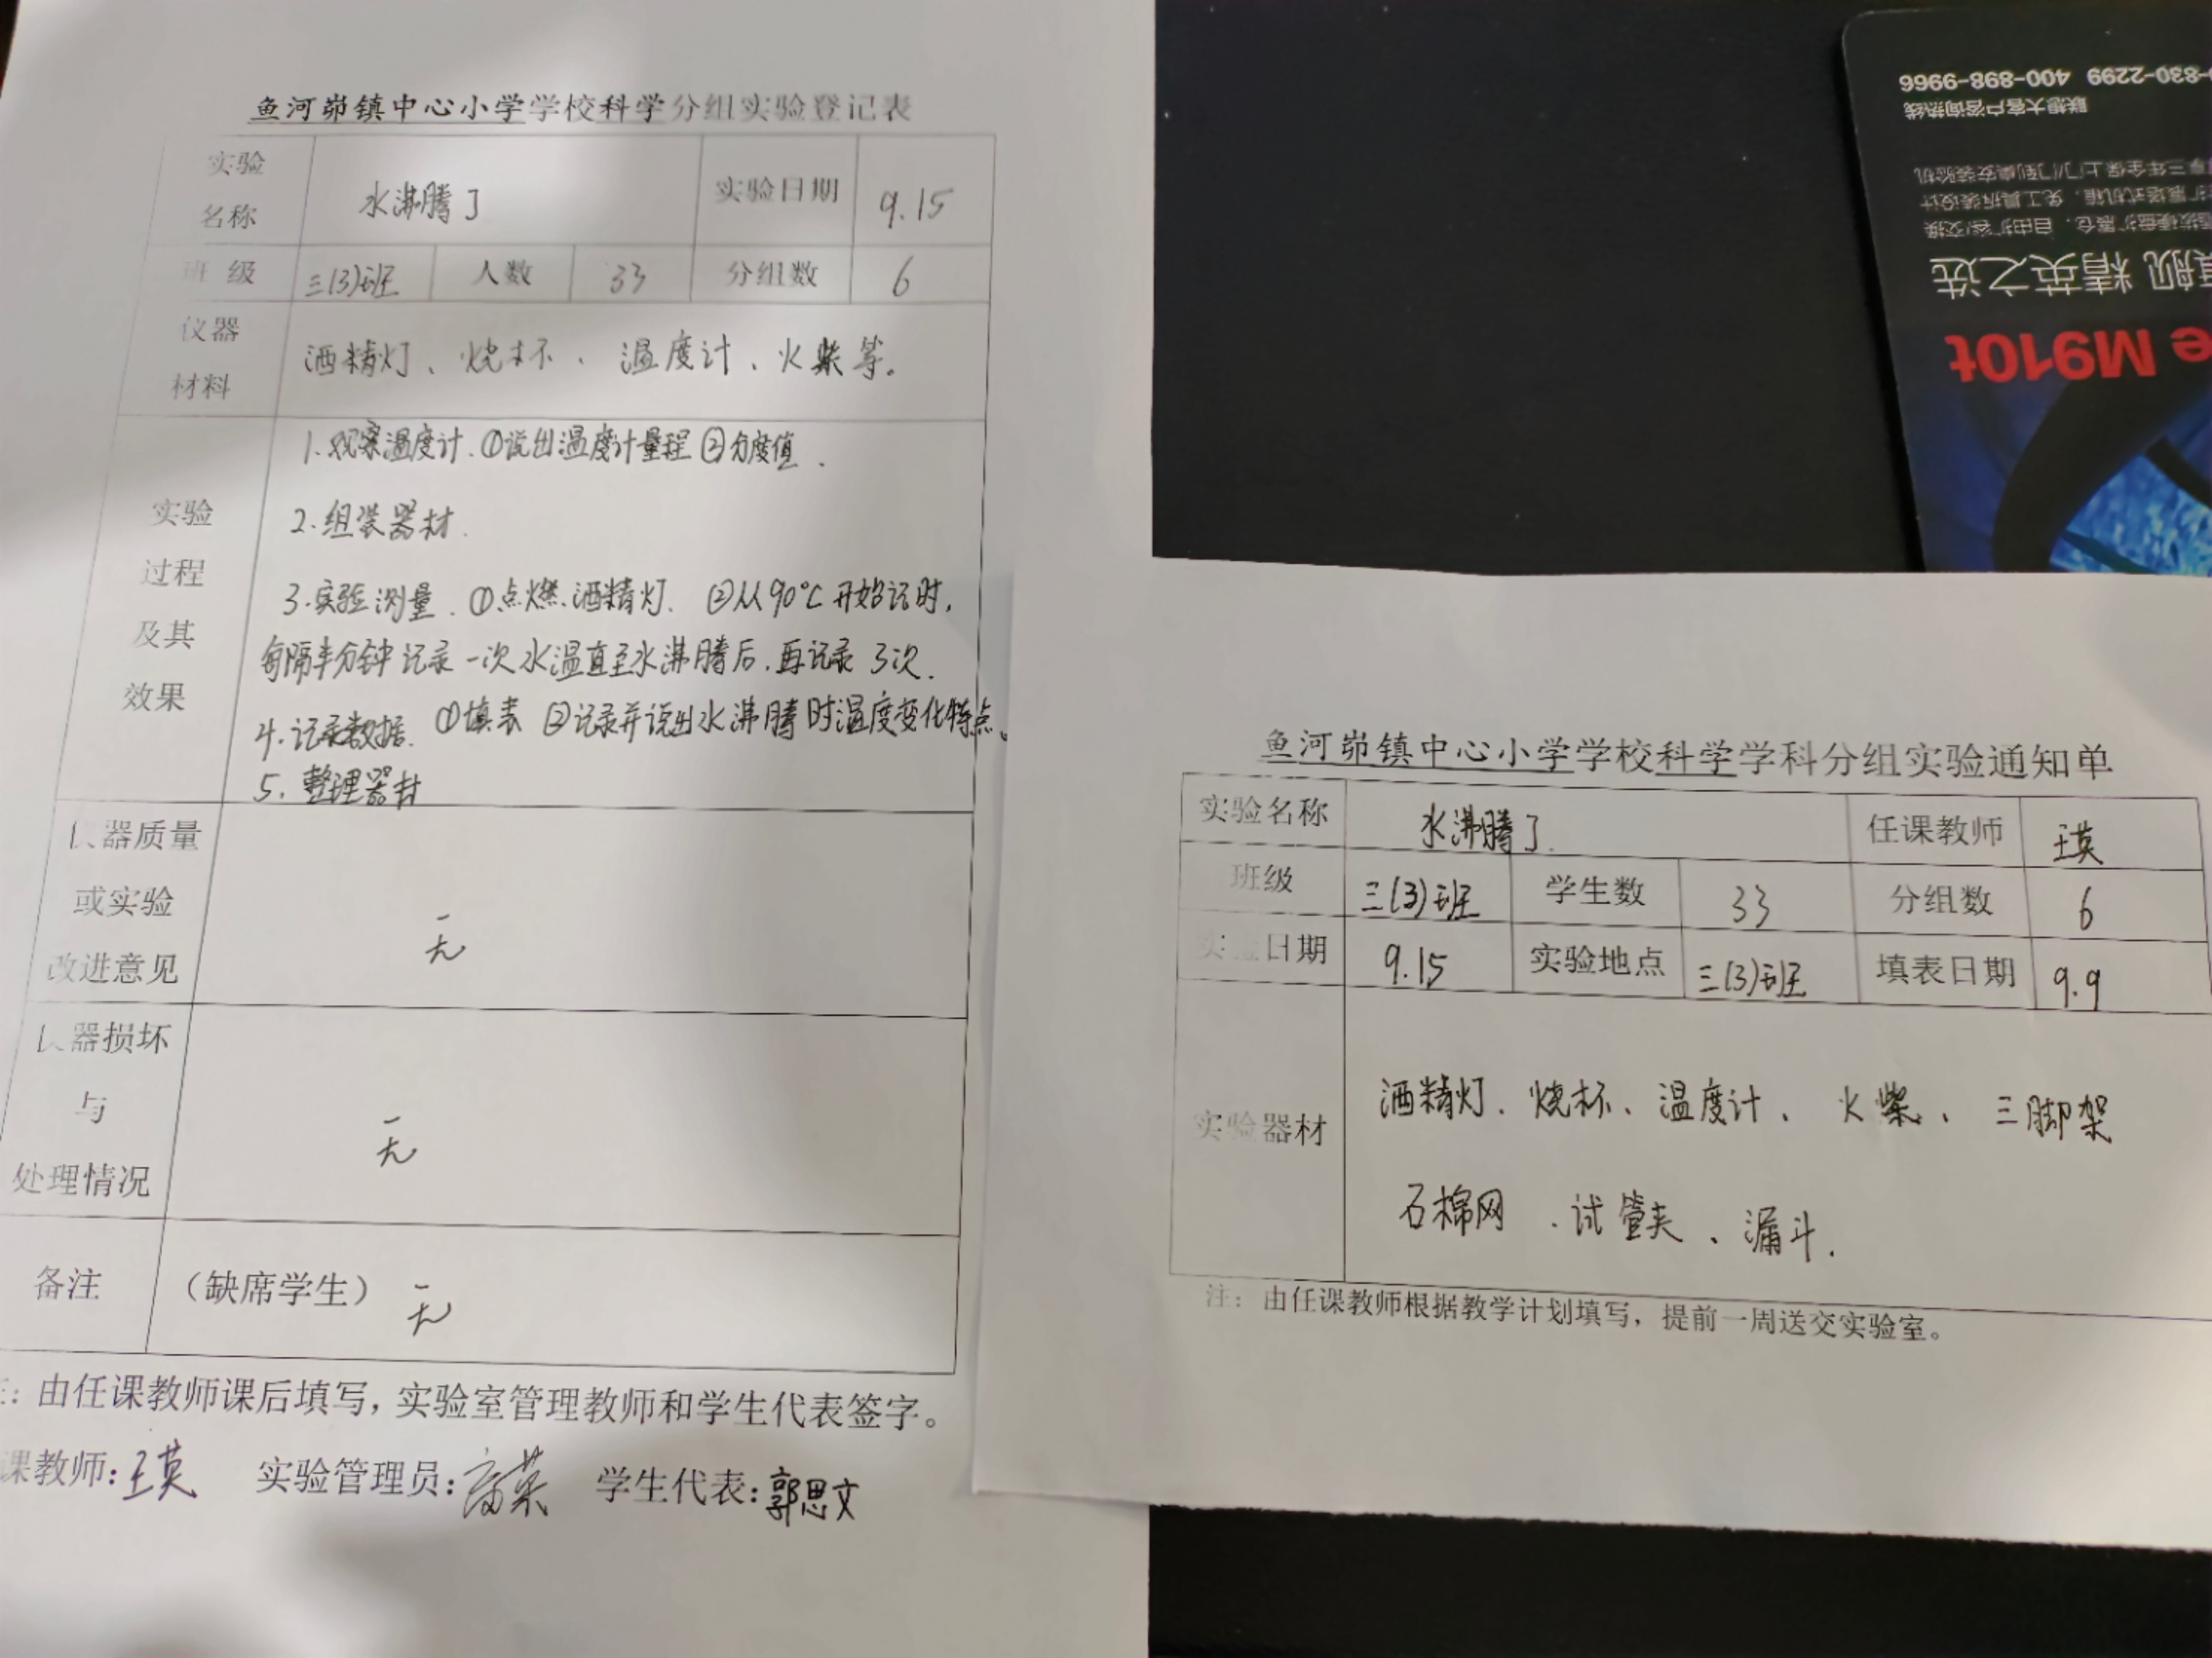 鱼河峁镇中心小学学校科学分组实验登记表
实验名称 水沸腾了 实验日期 9.15
班级 三(3)班 人数 33 分组数 6
仪器材料 酒精灯、烧杯、温度计、火柴等。
实验过程及其效果
1.观察温度计.①说出温度计量程②分度值.
2.组装器材.
3.实验测量.①点燃酒精灯.②从90℃开始记时,
每隔半分钟记录一次水温直至水沸腾后.再记录3次.
4.记录数据.①填表②记录并说出水沸腾时温度变化特点。
5.整理器材
仪器质量或实验改进意见 无
仪器损坏与处理情况 无
备注 (缺席学生) 无
注:由任课教师课后填写,实验室管理教师和学生代表签字。
课教师:王英 实验管理员: 学生代表:郭思文
鱼河峁镇中心小学学校科学学科分组实验通知单
实验名称 水沸腾了. 任课教师 王英
班级 三(3)班 学生数 33 分组数 6
实验日期 9.15 实验地点 三(3)班 填表日期 9.9
实验器材 酒精灯、烧杯、温度计、火柴、三脚架
石棉网、试管夹、漏斗.
注:由任课教师根据教学计划填写,提前一周送交实验室。
e M910t
舰 精英之选
扩展仓,自由扩容/交换
扩展塔式机箱,免工具拆装设计
享三年全保上门/门到桌安装验机
联想大客户咨询热线
0-830-2299 400-898-9966